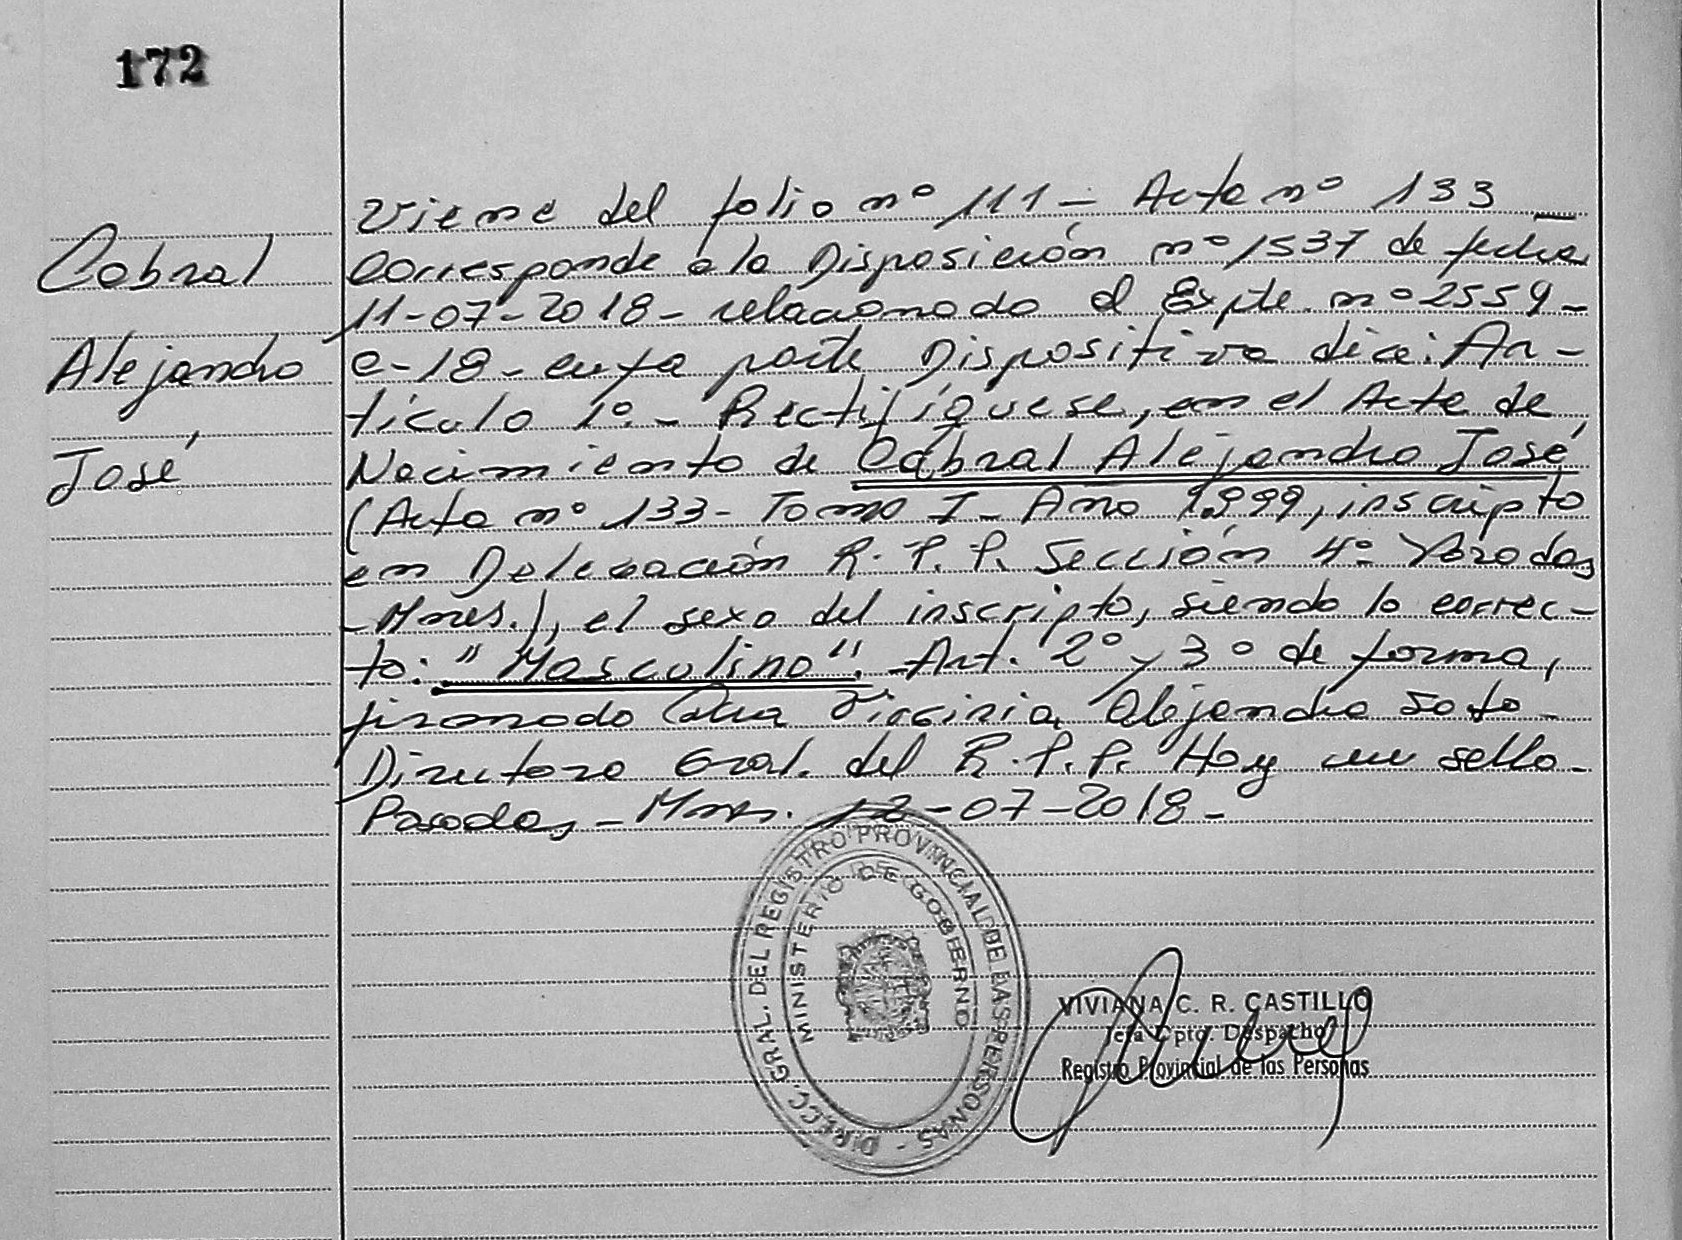 172
Cobral
Alejandro
José
Viene del folio nº 111 - Acta nº 133 -
Corresponde a la Disposición nº 1537 de fecha
11-07-2018 - relacionado al Expte. nº 2559-
C-18 - cuya parte Dispositiva dice: Ar-
tículo 1º. - Rectifíquese, en el Acta de
Nacimiento de Cabral Alejandro José
(Acta nº 133 - Tomo I - Año 1.999, inscripto
en Delegación R. P. P. Sección 4º Posadas
- Mnes.), el sexo del inscripto, siendo lo correc-
to: "Masculino". Art. 2º y 3º de forma,
firmado Virginia Alejandra Soto -
Directora Gral. del R. P. P. Hay un sello -
Posadas, - Mnes. 12-07-2018 -
DIRECC. GRAL. DEL REGISTRO PROVINCIAL DE LAS PERSONAS -
MINISTERIO DE GOBIERNO
VIVIANA C. R. CASTILLO
Jefa Dpto. Despacho
Registro Provincial de las Personas